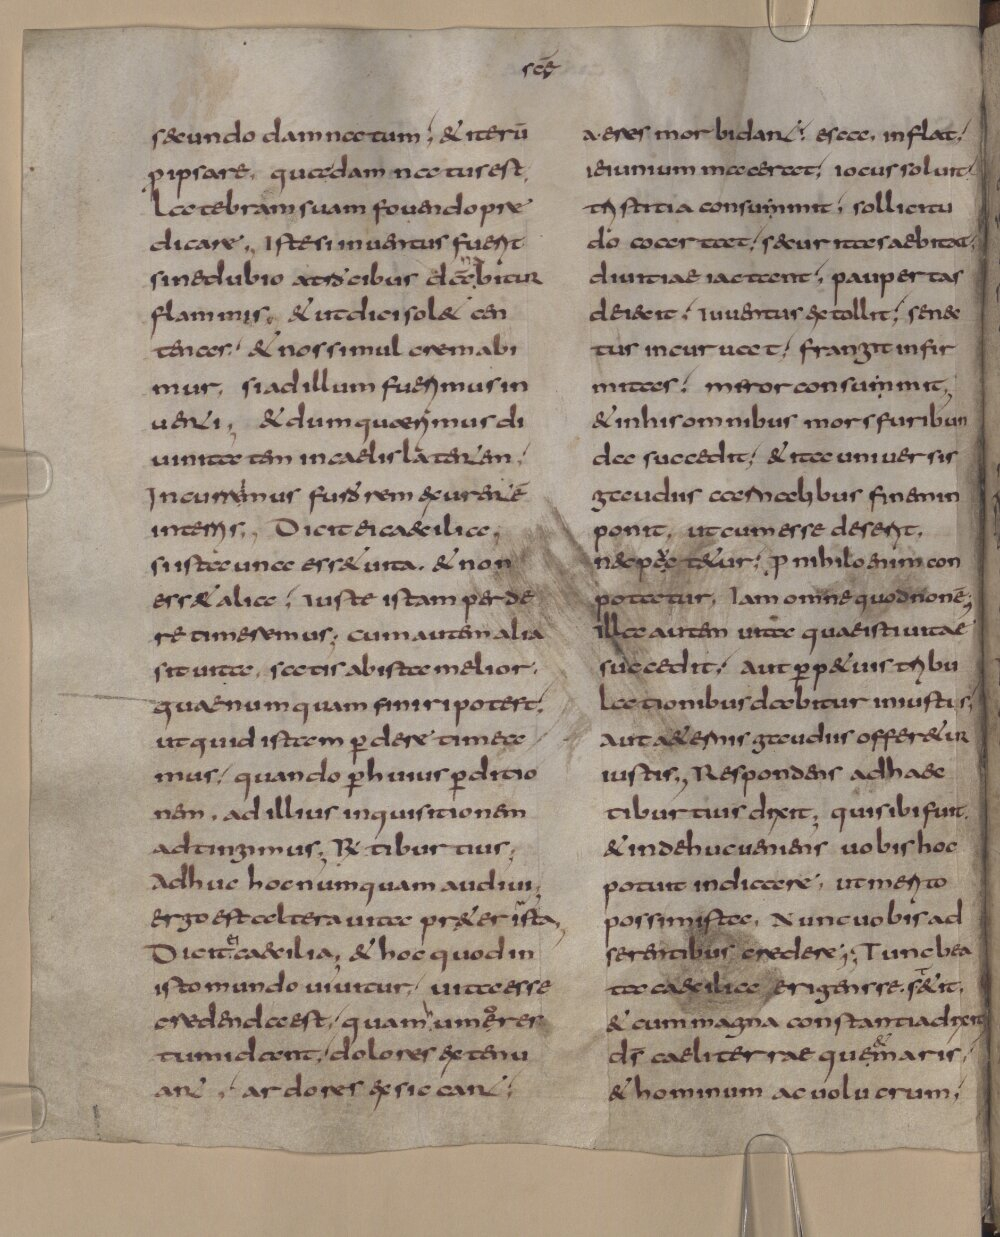 scē
secundo damnatum; & iterū
p ipsare, quae damnatus est,
Latebram suam fovendo prae
dicare, Iste si inventus fuerit
sine dubio atrocibus dabitur
flammis, & ut dici sol& cen
tenas; & nos simul cremabi
mur, si ad illum fuerimus in
venti; & dum quaerimus di
vinitatem in caelis latentem,
Incurremus furorem exurentē
in terris; Dicit ei caecilia,
si ista una ess& vita, & non
ess& alia; Iuste istam perde
re timeremus; cum autem alia
sit vita, satis ab ista melior,
quae numquam finiri potest,
ut quid istam pdere timea
mus, quando p huius pditio
nem, ad illius inquisitionem
adtingimus; R& tiburtius;
Adhuc hoc numquam audivi;
ergo est altera vita praeter ista,
Dicit ei caecilia, & hoc quod in
isto mundo vivitur, vita esse
credenda est, quam umores
tumidant, dolores extenu
ant, ardores exsiccant,
aeres morbidant, escae inflant,
ieiunium macerat, iocus solvit,
tristitia consummit, sollicitu
do coartat, securitas aebitat,
divitiae iactant, paupertas
deiecit, Iuventus extollit, senec
tus incurvat, frangit infir
mitas, meror consummit,
& in his omnibus mors furibun
da succedit, & ita universis
gaudiis carnalibus finem in
ponit, ut cum esse deserit,
nec pec tetur; P nihilo enim con
potatur, Iam omne quod nonē;
Illa autem vita quae isti vitae
succedit, aut ppetuis tribu
Lationibus dabitur iniustis,
aut aeternis gaudiis offer&ur
iustis; Respondens ad haec
tiburtius dixit; quis ibi fuit,
& inde huc veniens vobis hoc
potuit indicare, ut merito
possim ista, Nunc vobis ad
serentibus credere; Tunc bea
ta caecilia erigens se st&it,
& cum magna constantia dixit,
dr caeli terrae que & maris,
& hominum ac volucrum,